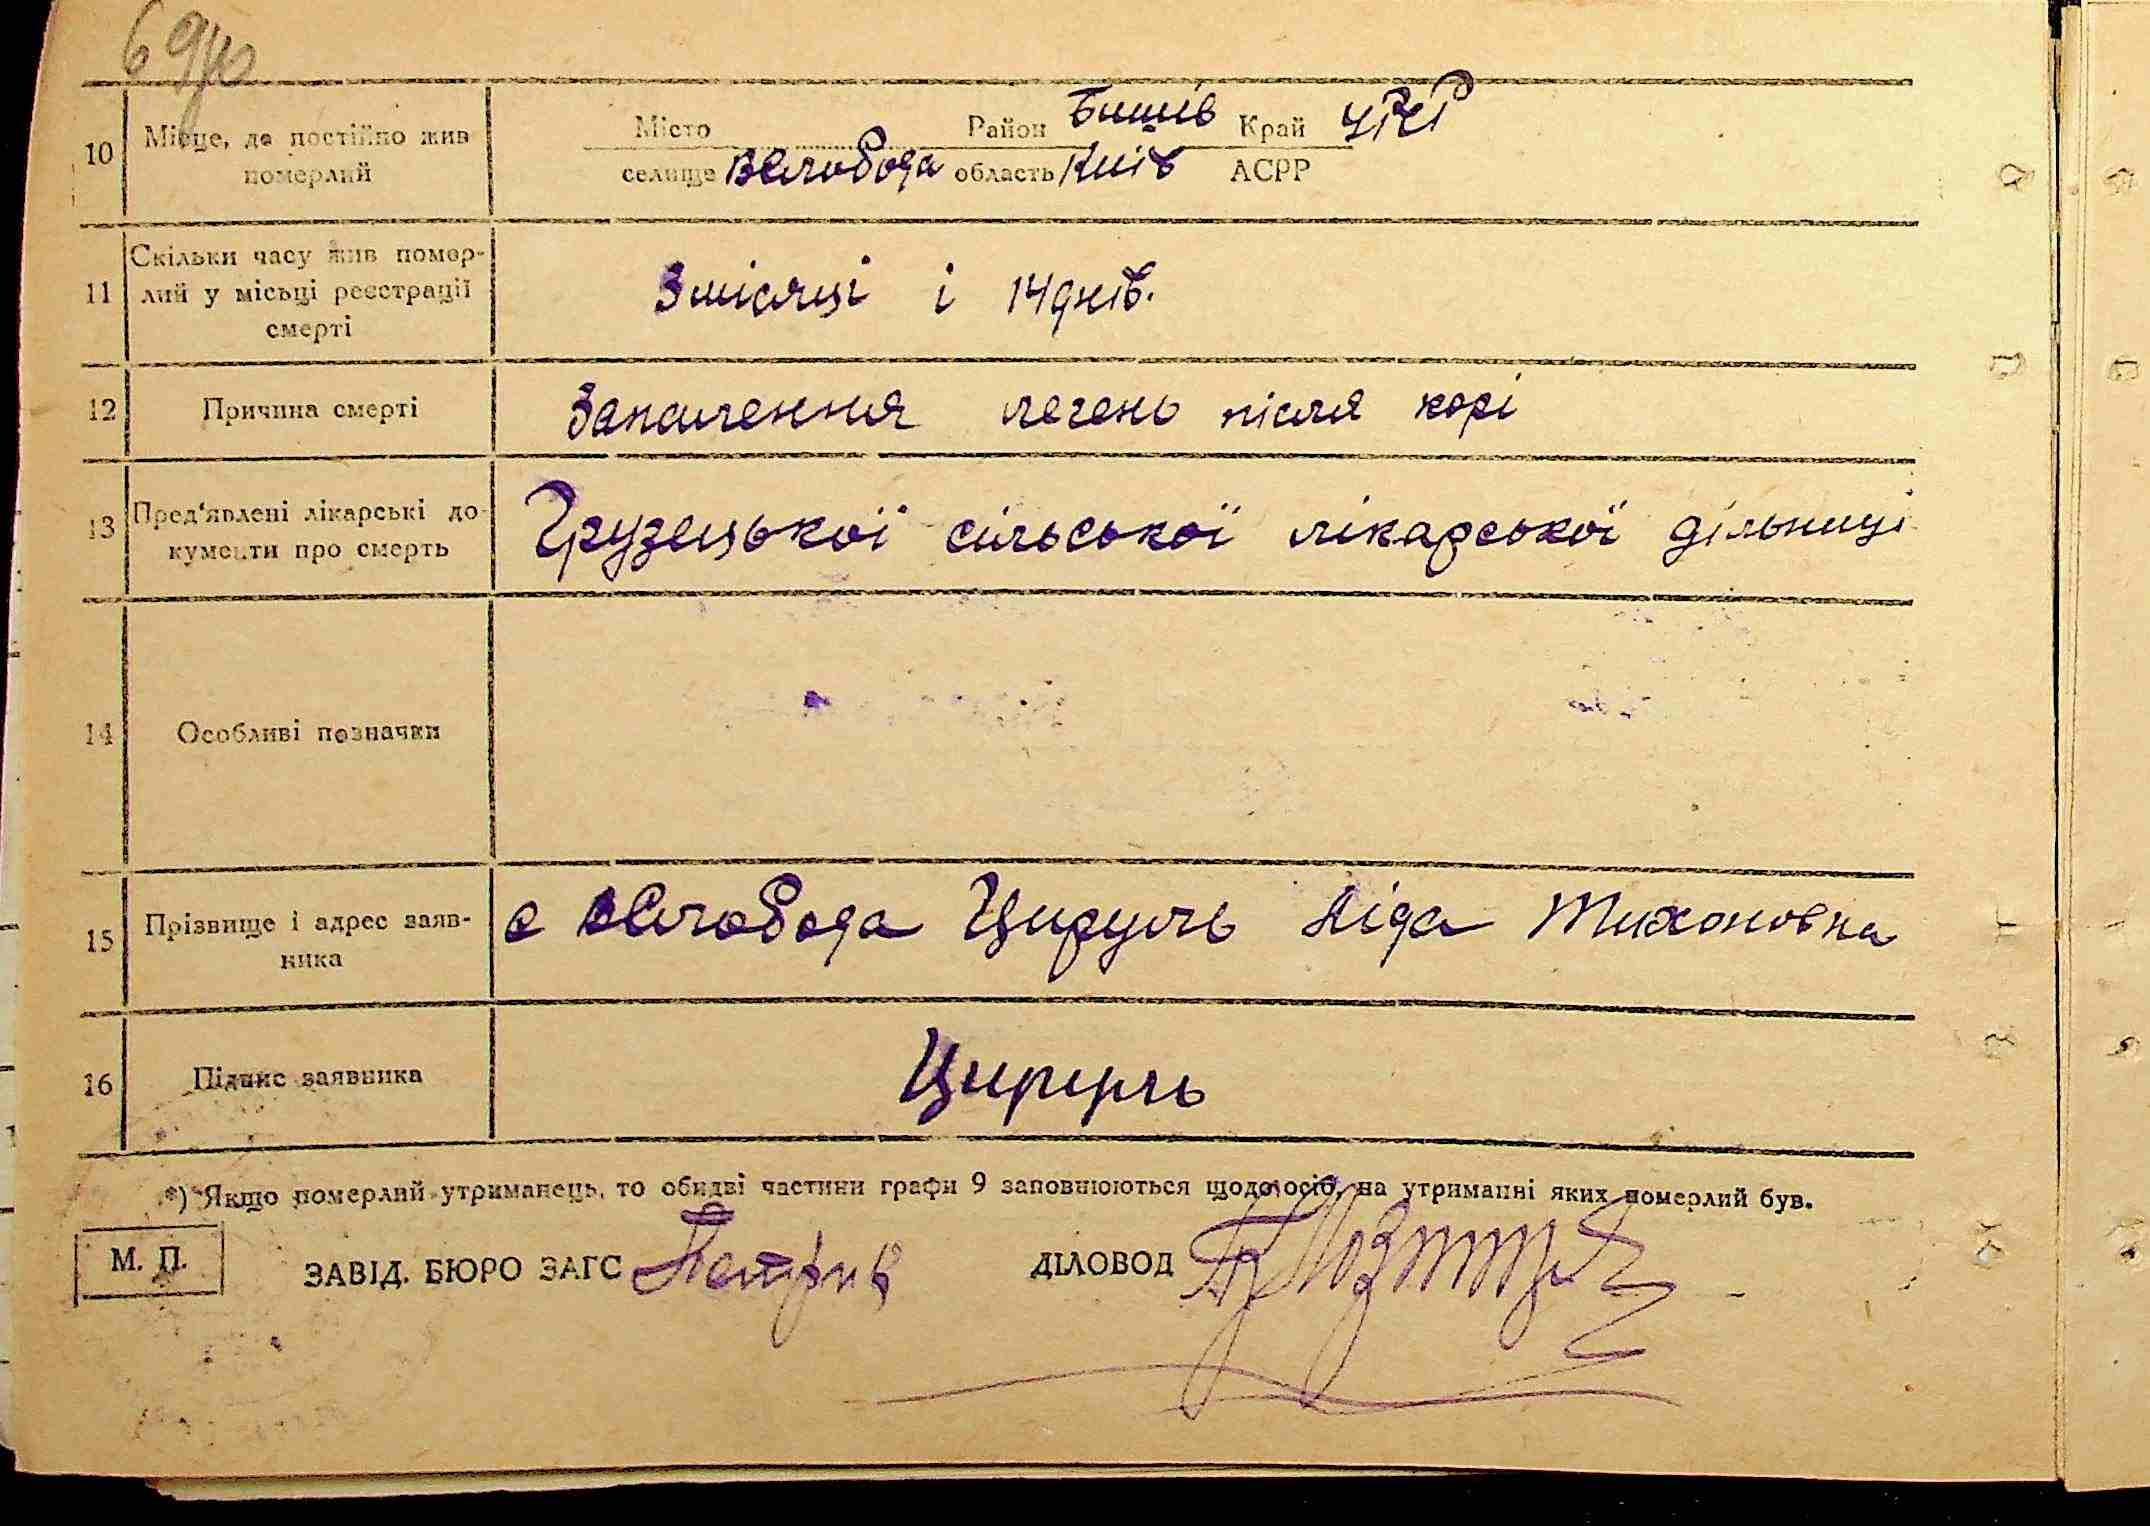 10 Місце, де постійно жив померлий
Місто Район Бишів Край УРСР
селище ВСлобода область Київ АСРР
11 Скільки часу жив помер-
лий у місьці реєстрації
смерті
3 місяці і 14 днів.
12 Причина смерті
Запалення легень після корі
13 Пред'явлені лікарські до-
кументи про смерть
Грузецької сільської лікарської дільниці
14 Особливі позначки
15 Прізвище і адрес заяв-
ника
с ВСлобода Цируль Ліда Тихоновна
16 Підпис заявника
Цируль
*) Якщо померлий утриманець, то обидві частини графи 9 заповнюються щодо осіб, на утриманні яких померлий був.
М. П.
ЗАВІД. БЮРО ЗАГС Петрив
ДІЛОВОД